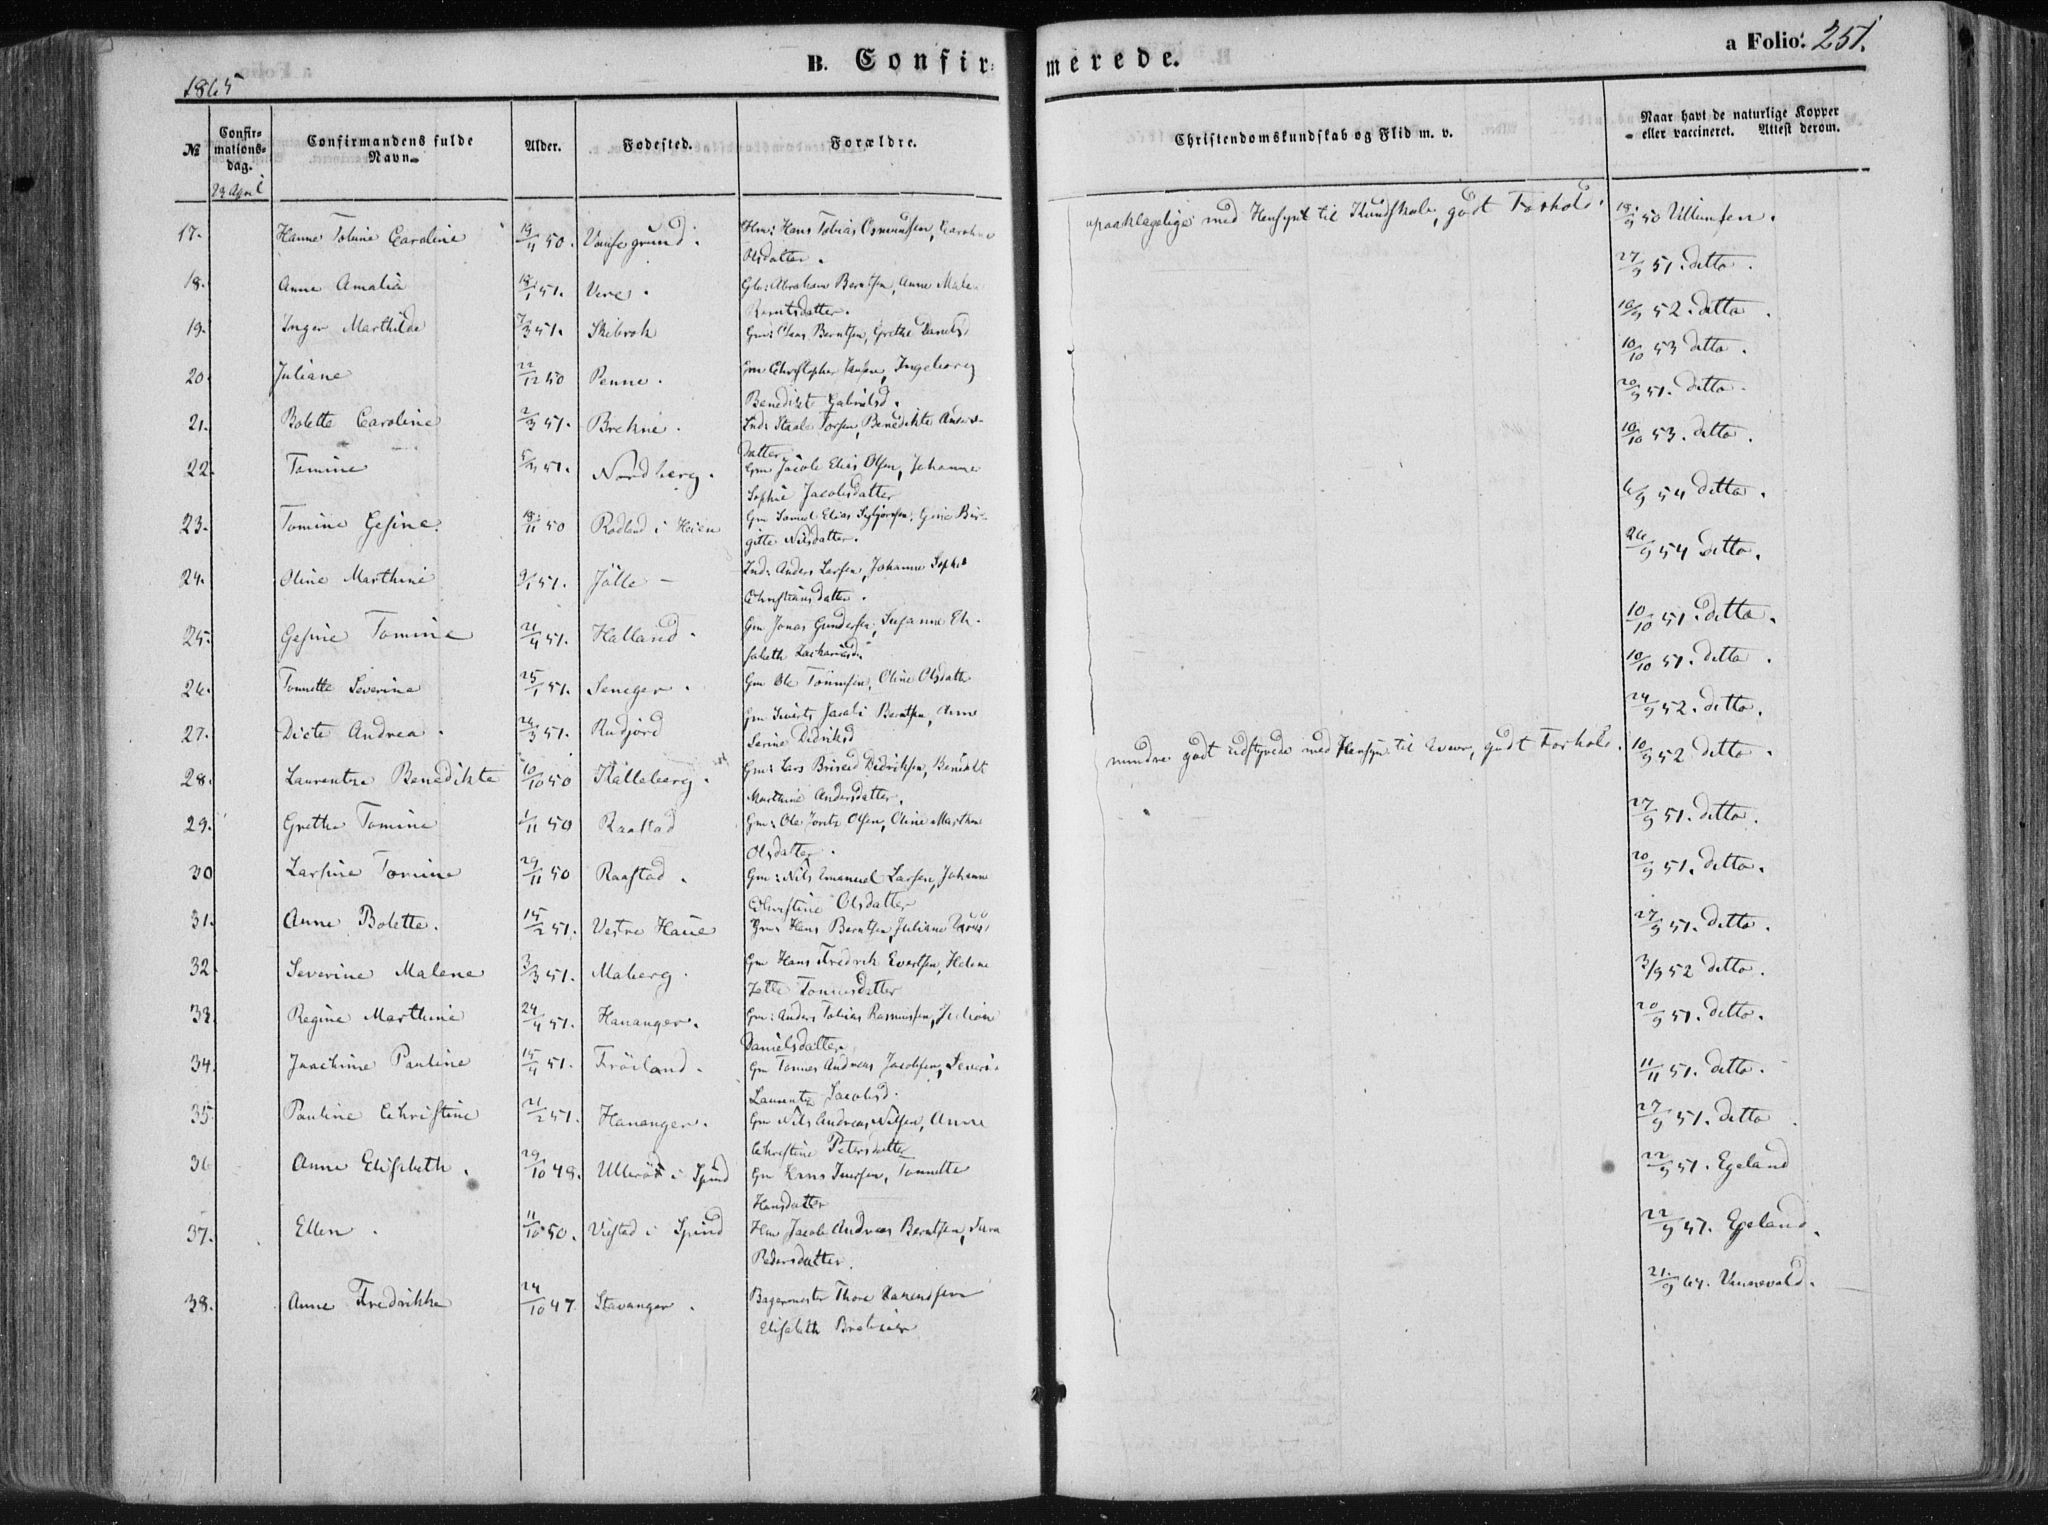 B. Confirmerede.
a Folio: 251.
1865
№
Confirmationsdag.
Confirmandens fulde Navn.
Alder.
Fødested.
Forældre.
Christendomskundskab og Flid m. v.
Naar havt de naturlige Kopper eller vaccineret. Attest derom.
23 April
17. Hanne Tobine Caroline 19/11 50. Hm: Hans Tobias Osmundsen, Caroline
Olsdatter.
upaaklagelige med Hensyn til Kundskab, godt Forhold. 18/9 50 Ullunsen.
18. Anne Amalia 18/1 51. Vere. Gm: Abraham Berntsen, Anne Male
Berntsdatter.
27/9 51. ditto.
19. Inger Marthilde 7/3 51. Skibrok Gm: Claus Berntsen, Grethe Danielsd
10/9 52. ditto.
20. Juliane 22/12 50 Penne. Gm Christopher Hansen, Ingeborg
Benedikte Gabrielsd.
10/10 53 ditto.
21. Bolette Caroline 2/3 51. Brekne. Ind: Staale Torsen, Benedikte Anders-
datter
20/9 51. ditto.
22. Tomine 5/3 51. Nordberg. Gm Jacob Elias Olsen, Johanne
Sophie Jacobsdatter
10/10 53. ditto.
23. Tomine Gesine. 18/11 50 Rødland i Heien Gm Samuel Elias Sigbjørnsen, Gine Bir-
gitte Nilsdatter.
6/9 54 ditto.
24. Oline Marthine 9/1 51. Jølle – Ind: Anders Larsen, Johanne Sophie
Christiansdatter.
26/9 54 ditto.
25. Gesine Tomine 21/4 51. Halland. Gm Jonas Gundersen, Susanne Eli-
sabeth Zachariasd.
10/10 51. ditto.
26. Tonnette Severine 25/1 51. Seneger. Gm Ole Tønnesen, Oline Olsdatter
10/10 51. ditto.
27. Diete Andrea. 24/3 51. Rudjord Gm Sivert Jacob Berntsen, Anne
Serine Didriksd
24/9 52. ditto.
28. Laurentze Benedikte 10/10 50 Kalleberg. Gm: Lars Briseid Didriksen, Benedikt
Marthine Andersdatter.
mindre godt udstyrede med Hensyn til Evner, godt Forhold. 10/9 52 ditto.
29. Grethe Tomine 1/11 50 Raastad Gm: Ole Joritz Olsen, Oline Marthine
Olsdatter.
27/9 51. ditto.
30 Larsine Tomine 29/11 50 Raastad. Gm: Nils Emanuel Larsen, Johanne
Christine Olsdatter
20/9 51. ditto.
31. Anne Bolette. 15/2 51. Vestre Haue Gm: Hans Berntsen, Juliane
27/9 51. ditto.
32. Severine Malene 3/3 51. Maberg. Gm Hans Fredrik Evertsen, Helene
Jette Tønnesdatter
3/9 52 ditto.
33. Regine Marthine 24/4 51. Hananger. Gm: Anders Tobias Rasmussen, Juliane
Danielsdatter.
20/9 51. ditto.
34. Joachime Pauline 15/4 51. Frøiland. Gm Tønnes Andreas Jacobsen, Severi-
Laurentz Jacobsd.
11/11 51. ditto.
35. Pauline Christine 21/2 51. Hananger. Gm Nils Andreas Nilsen, Anne
Christine Petersdatter
27/9 51. ditto.
36 Anne Elisabeth. 29/10 48. Ullerøi i Spind Gm Hans Iversen, Tonnette
Hansdatter
22/9 51. Egeland
37. Ellen. 11/10 50. Vistad i Spind Hm Jacob Andreas Berntsen,
Pedersdatter.
22/9 51. Egeland.
38. Anne Fredrikke 24/10 47. Stavanger. Bagermester Thore
Elisabeth
21/9 64.